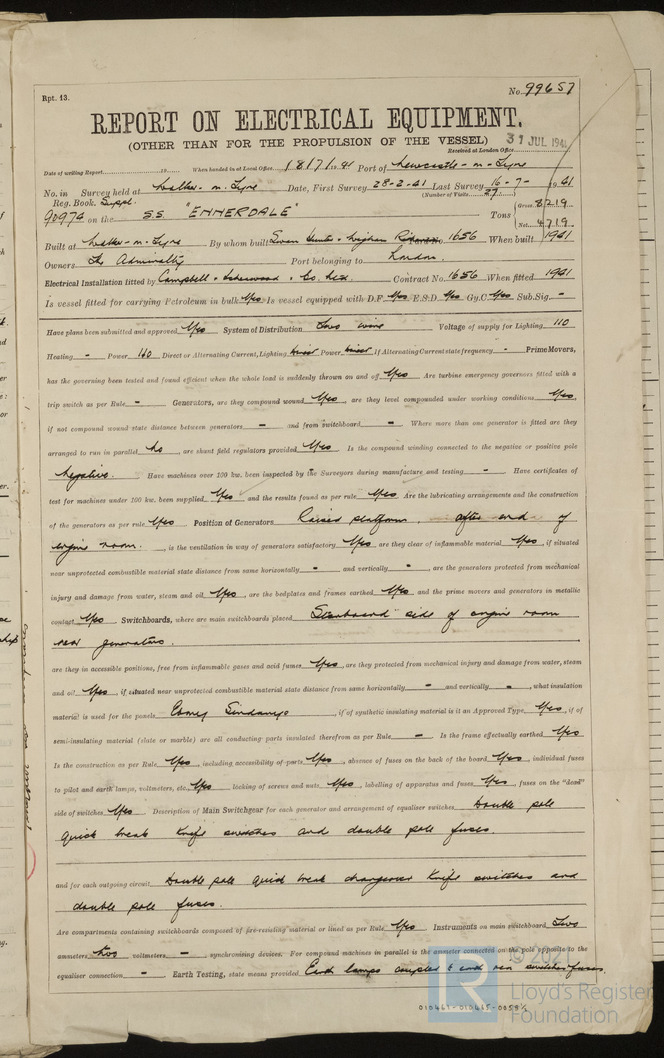 Rpt. 13.
No. 99657
REPORT ON ELECTRICAL EQUIPMENT.
(OTHER THAN FOR THE PROPULSION OF THE VESSEL)
31 JUL 1941
Received at London Office
Date of writing Report 19 When handed in at Local Office 18/7/1941 Port of Newcastle-on-Tyne
No. in Survey held at Walker-on-Tyne Date, First Survey 28-2-41 Last Survey 16-7-1941
Reg. Book. Suppl. (Number of Visits 27)
90974 on the S.S. "ENNERDALE" Tons Gross 8219
Net 4719
Built at Walker-on-Tyne By whom built Swan Hunter & Wigham Richardson 1656 When built 1941
Owners The Admiralty Port belonging to London.
Electrical Installation fitted by Campbell & Isherwood & Co. Ltd. Contract No. 1656 When fitted 1941
Is vessel fitted for carrying Petroleum in bulk Yes Is vessel equipped with D.F. Yes E.S.D. Yes Gy.C. Yes Sub.Sig. -
Have plans been submitted and approved Yes System of Distribution Two wire Voltage of supply for Lighting 110
Heating - Power 110 Direct or Alternating Current, Lighting Direct Power Direct If Alternating Current state frequency - Prime Movers,
has the governing been tested and found efficient when the whole load is suddenly thrown on and off Yes Are turbine emergency governors fitted with a
trip switch as per Rule - Generators, are they compound wound Yes, are they level compounded under working conditions Yes,
if not compound wound state distance between generators - and from switchboard - Where more than one generator is fitted are they
arranged to run in parallel No, are shunt field regulators provided Yes Is the compound winding connected to the negative or positive pole
Negative. Have machines over 100 kw. been inspected by the Surveyors during manufacture and testing - Have certificates of
test for machines under 100 kw. been supplied Yes and the results found as per rule Yes Are the lubricating arrangements and the construction
of the generators as per rule Yes Position of Generators Raised platform, after end of
engine room. , is the ventilation in way of generators satisfactory Yes are they clear of inflammable material Yes, if situated
near unprotected combustible material state distance from same horizontally - and vertically -, are the generators protected from mechanical
injury and damage from water, steam and oil Yes, are the bedplates and frames earthed Yes and the prime movers and generators in metallic
contact Yes Switchboards, where are main switchboards placed Starboard side of engine room
near generators.
are they in accessible positions, free from inflammable gases and acid fumes Yes, are they protected from mechanical injury and damage from water, steam
and oil Yes, if situated near unprotected combustible material state distance from same horizontally - and vertically -, what insulation
material is used for the panels Sindanyo, if of synthetic insulating material is it an Approved Type Yes, if of
semi-insulating material (slate or marble) are all conducting parts insulated therefrom as per Rule - Is the frame effectually earthed Yes
Is the construction as per Rule Yes, including accessibility of parts Yes, absence of fuses on the back of the board Yes, individual fuses
to pilot and earth lamps, voltmeters, etc. Yes, locking of screws and nuts Yes, labelling of apparatus and fuses Yes, fuses on the "dead"
side of switches Yes Description of Main Switchgear for each generator and arrangement of equaliser switches Double pole
quick break knife switches and double pole fuses.
and for each outgoing circuit Double pole quick break changeover knife switches and
double pole fuses.
Are compartments containing switchboards composed of fire-resisting material or lined as per Rule Yes Instruments on main switchboard Two
ammeters two voltmeters - synchronising devices. For compound machines in parallel is the ammeter connected on the pole opposite to the
equaliser connection - Earth Testing, state means provided Earth lamps coupled to earth via switches & fuses.
010461-010465-0058½
Lloyd's Register
Foundation